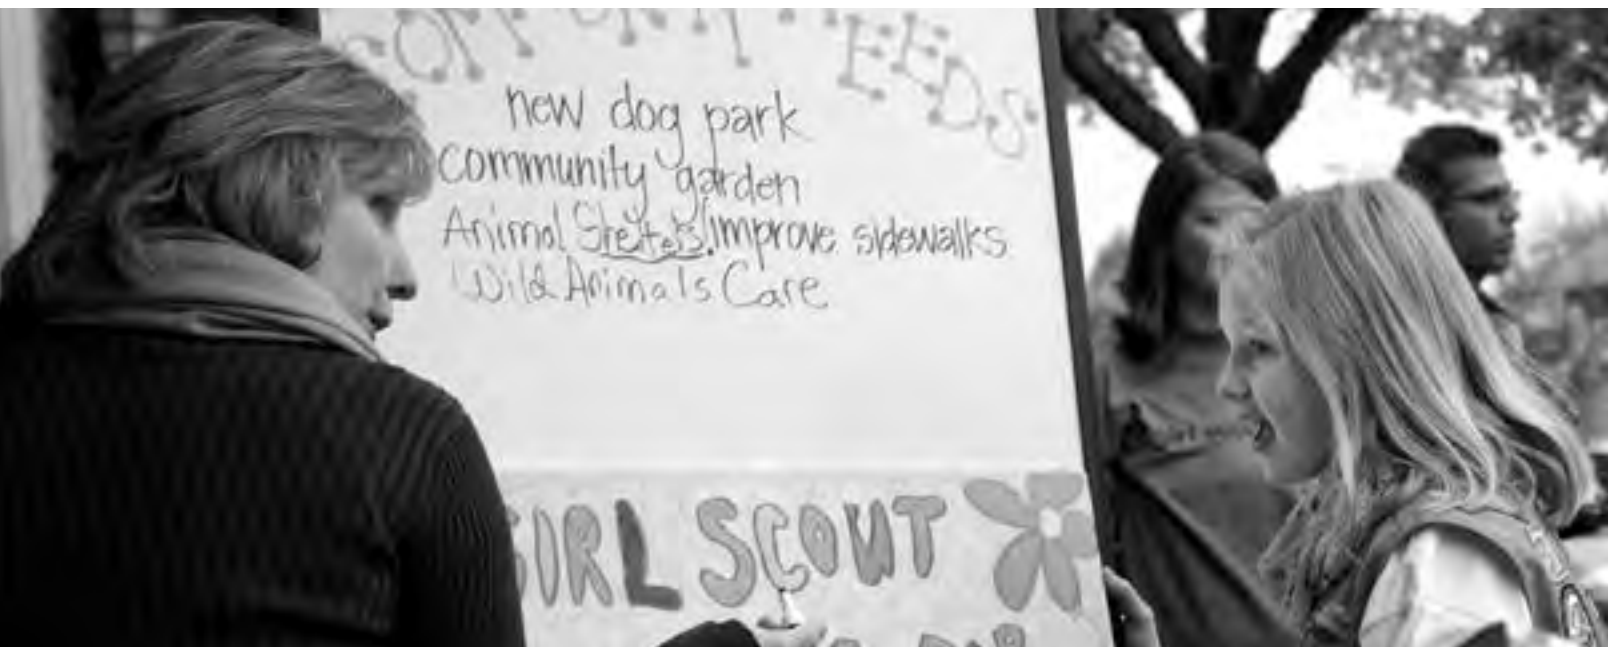 COMMUNITY NEEDS
new dog park
community garden
Animal Shelters. improve sidewalks
Wild Animals Care
GIRL SCOUT